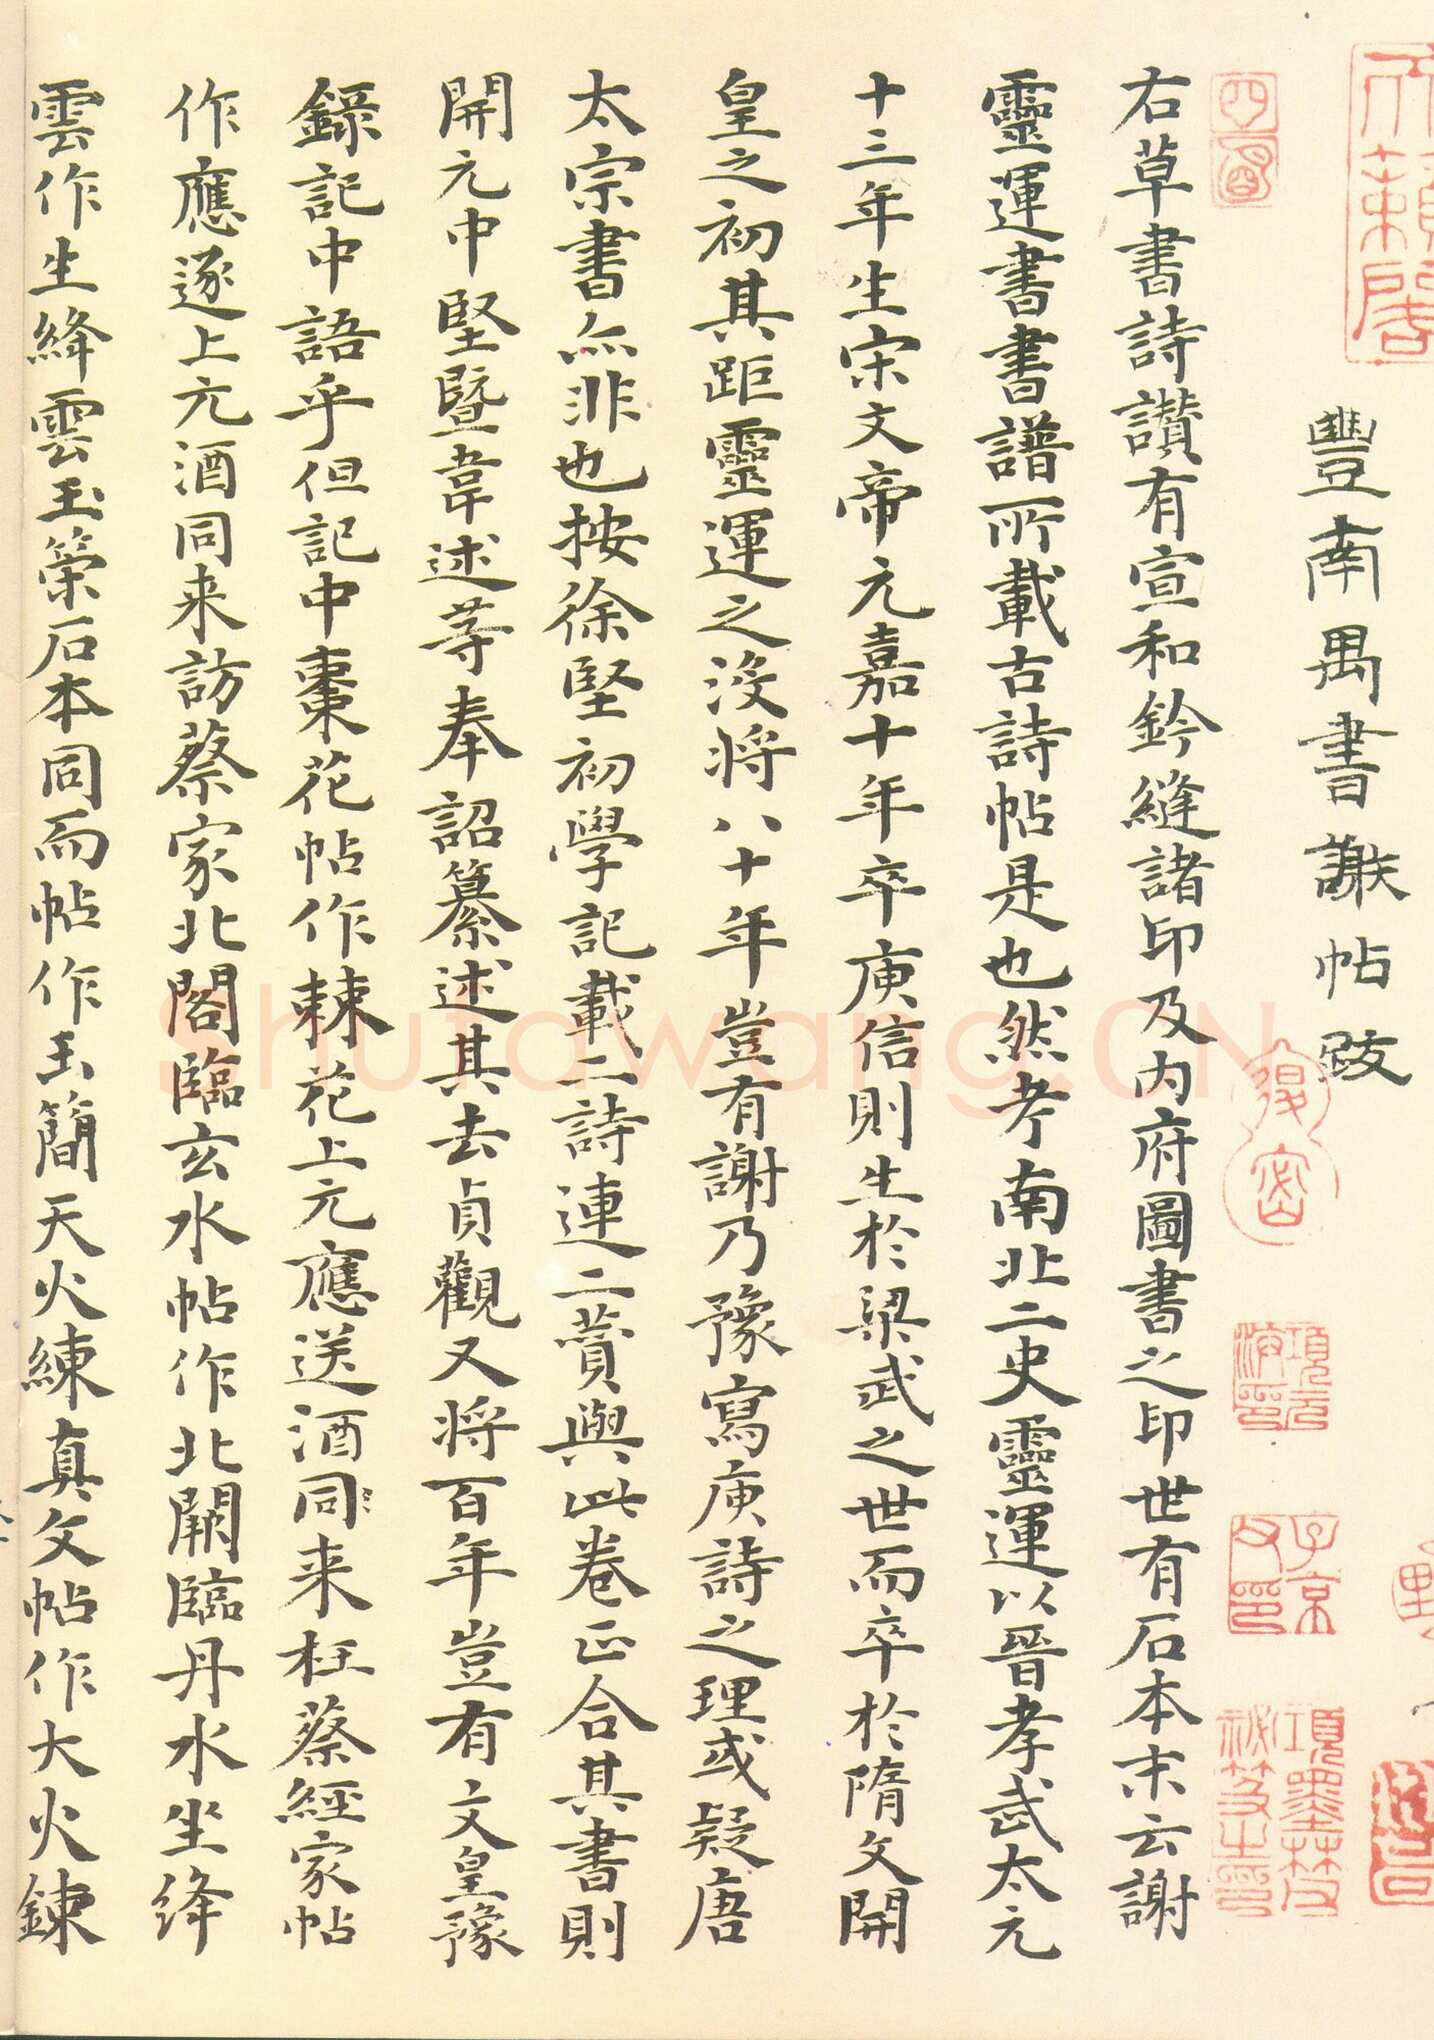 豐南禺書謝帖跋
右草書詩讚有宣和鈐縫諸印及內府圖書之印世有石本末云謝
靈運書書譜所載古詩帖是也然考南北二史靈運以晉孝武太元
十三年生宋文帝元嘉十年卒庾信則生於梁武之世而卒於隋文開
皇之初其距靈運之沒將八十年豈有謝乃豫寫庾詩之理或疑唐
太宗書亦非也按徐堅初學記載二詩連二讚與此卷正合其書則
開元中堅暨韋述等奉詔纂述其去貞觀又將百年豈有文皇豫
錄記中語乎但記中棗花帖作棘花上元應送酒同来枉蔡經家帖
作應逐上元酒同来訪蔡家北閣臨玄水帖作北闕臨丹水坐絳
雲作生絳雲玉策石本同而帖作玉簡天火練真文帖作大火鍊
四留
項元汴印
子京父印
項墨林父秘笈之印
shufawang.CN